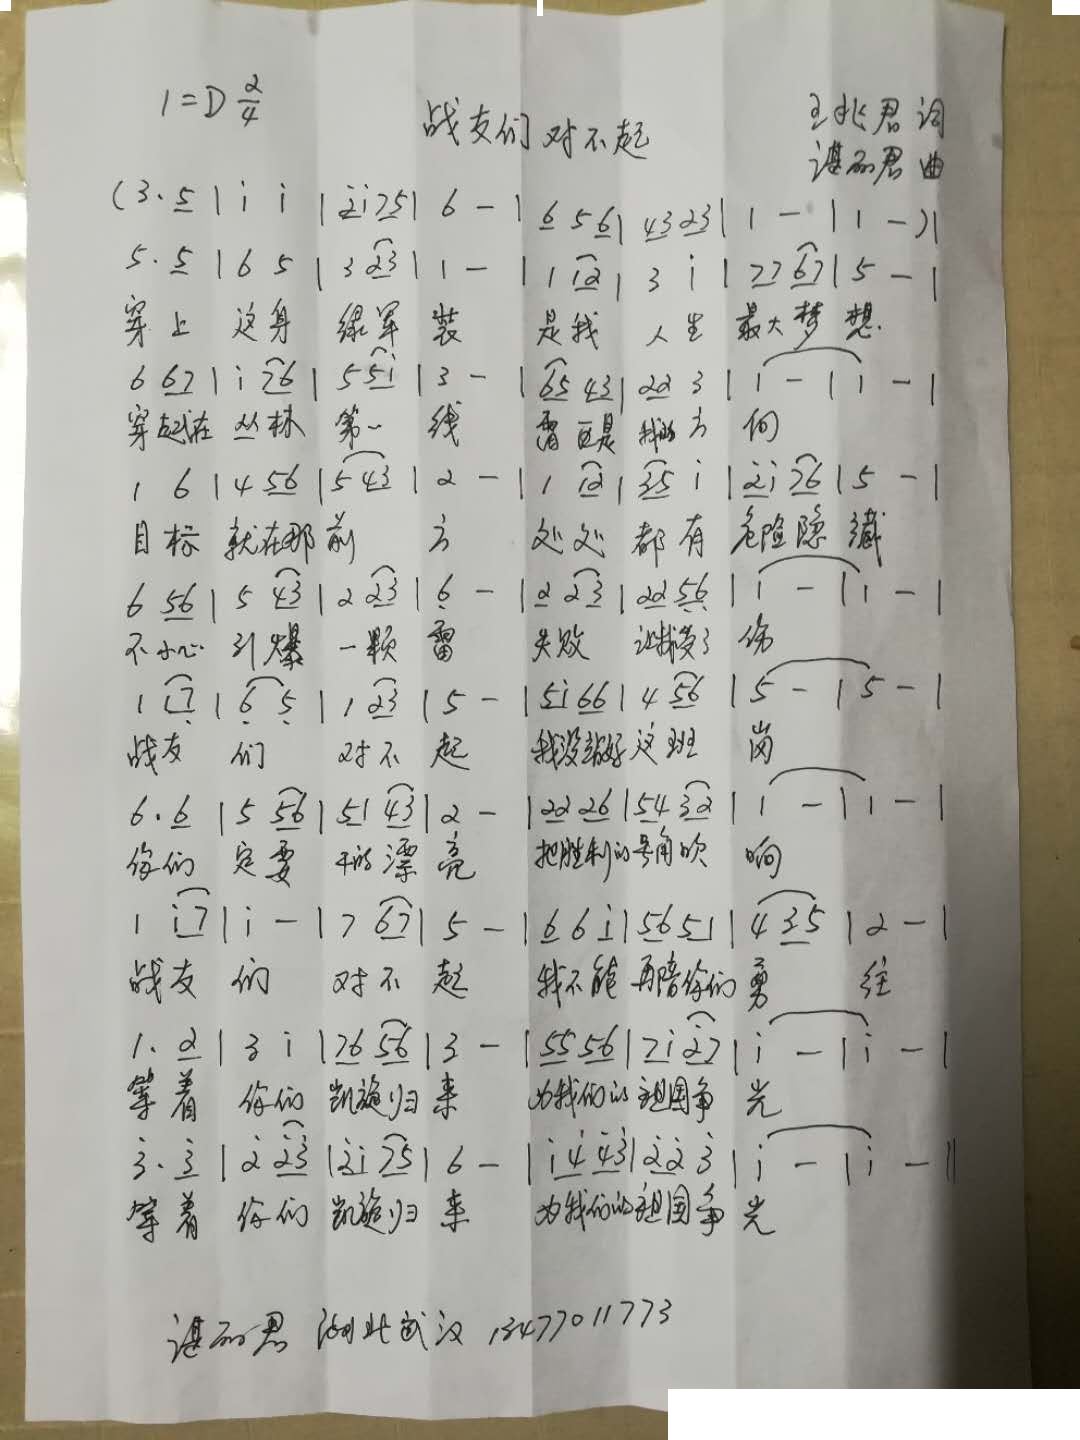 1=D 2/4
战友们对不起
王兆君 词
谌丽君 曲
(3. 5 | i i | 2i75 | 6 - | 6 5 6 | 43 23 | 1 - | 1 - ) |
5. 5 | 6 5 | 3 23 | 1 - | 1 12 | 3 i | 77 67 | 5 - |
穿上 这身 绿军 装 是我 人生 最大梦 想
6 67 | i 76 | 5 5i | 3 - | 65 43 | 22 3 | 1 - | 1 - |
穿越在 丛林 第一 线 雷区是 我的方 向
1 6 | 4 56 | 5 43 | 2 - | 1 12 | 35 i | 2i 76 | 5 - |
目标 就在那 前 方 处处 都有 危险隐 藏
6 56 | 5 43 | 2 23 | 6 - | 2 2 3 | 22 56 | 1 - | 1 - |
不小心 引爆 一颗 雷 失败 让我受了 伤
1 17 | 6 5 | 1 23 | 5 - | 5i 66 | 4 56 | 5 - | 5 - |
战友 们 对不 起 我没站好 这班 岗
6. 6 | 5 56 | 51 43 | 2 - | 22 26 | 54 32 | 1 - | 1 - |
你们 定要 干的漂 亮 把胜利的 号角吹 响
1 i7 | i - | 7 67 | 5 - | 6 6 i | 56 51 | 4 35 | 2 - |
战友 们 对不 起 我不能 再陪你们 勇 往
1. 2 | 3 i | 76 56 | 3 - | 55 56 | 7i 27 | i - | i - |
等着 你们 凯旋归 来 为我们的 祖国争 光
3. 3 | 2 23 | 2i 75 | 6 - | i4 43 | 22 3 | i - | i - ‖
等着 你们 凯旋归 来 为我们的 祖国争 光
谌丽君 湖北武汉 13477011773